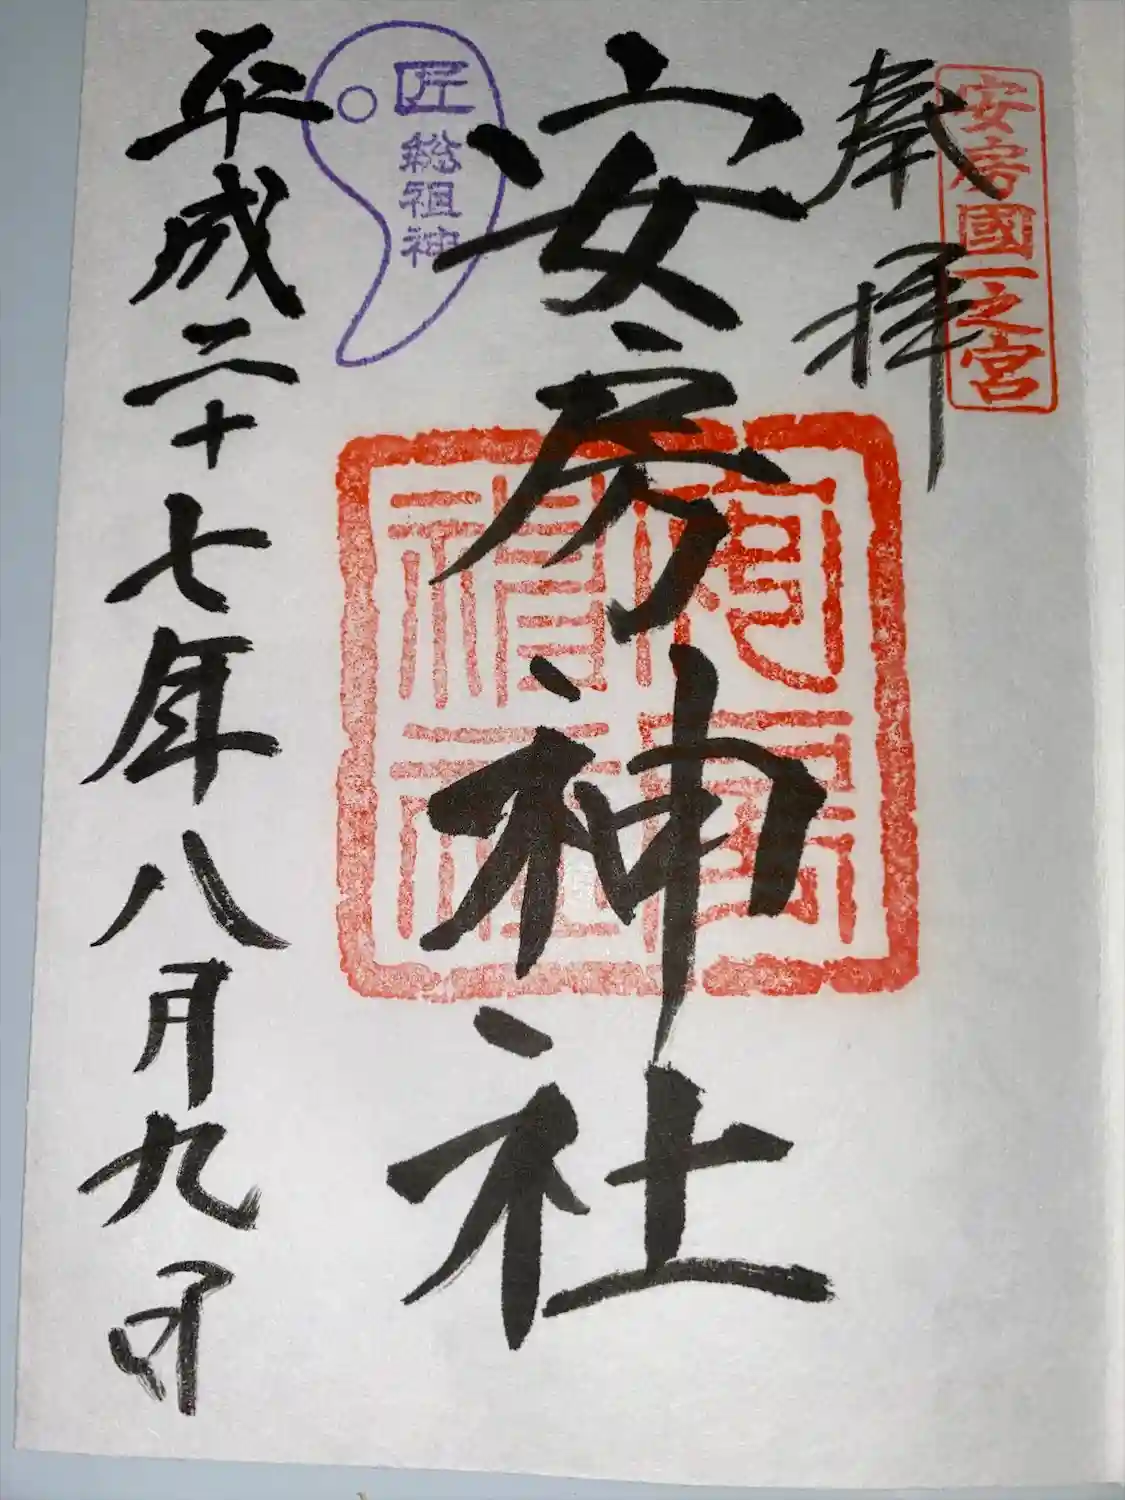 奉拝
安房國一之宮
安房神社
匠
総祖神
平成二十七年八月九日